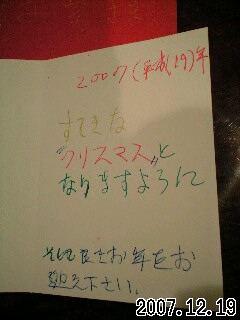 2007(平成19)年
すてきな
"クリスマス"と
なりますように
そして良きお年をお
迎え下さい。
2007.12.19